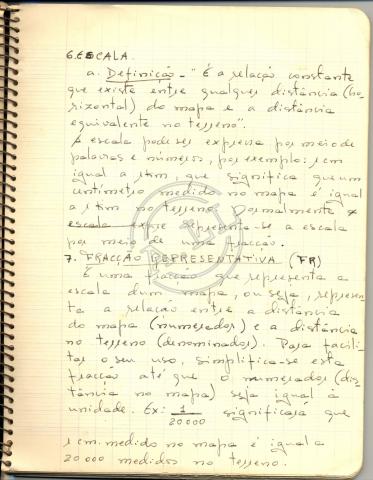 6. ESCALA.
a. Definição - "É a relação constante
que existe entre qualquer distância (ho-
rizontal) do mapa e a distância
equivalente no terreno".
A escala pode ser expressa por meio de
palavras e números, por exemplo: 1 cm
igual a 1 km, que significa que um
centímetro medido no mapa é igual
a 1 km no terreno. Normalmente a
escala expre representa-se a escala
por meio de uma fracção.
7. FRACÇÃO REPRESENTATIVA (FR)
É uma fracção que representa a
escala dum mapa, ou seja, represen-
ta a relação entre a distância
do mapa (numerador) e a distância
no terreno (denominador). Para facili-
tar o seu uso, simplifica-se esta
fracção até que o numerador (dis-
tância no mapa) seja igual à
unidade. Ex: 1/20000 significará que
1 cm. medido no mapa é igual a
20000 medidos no terreno.